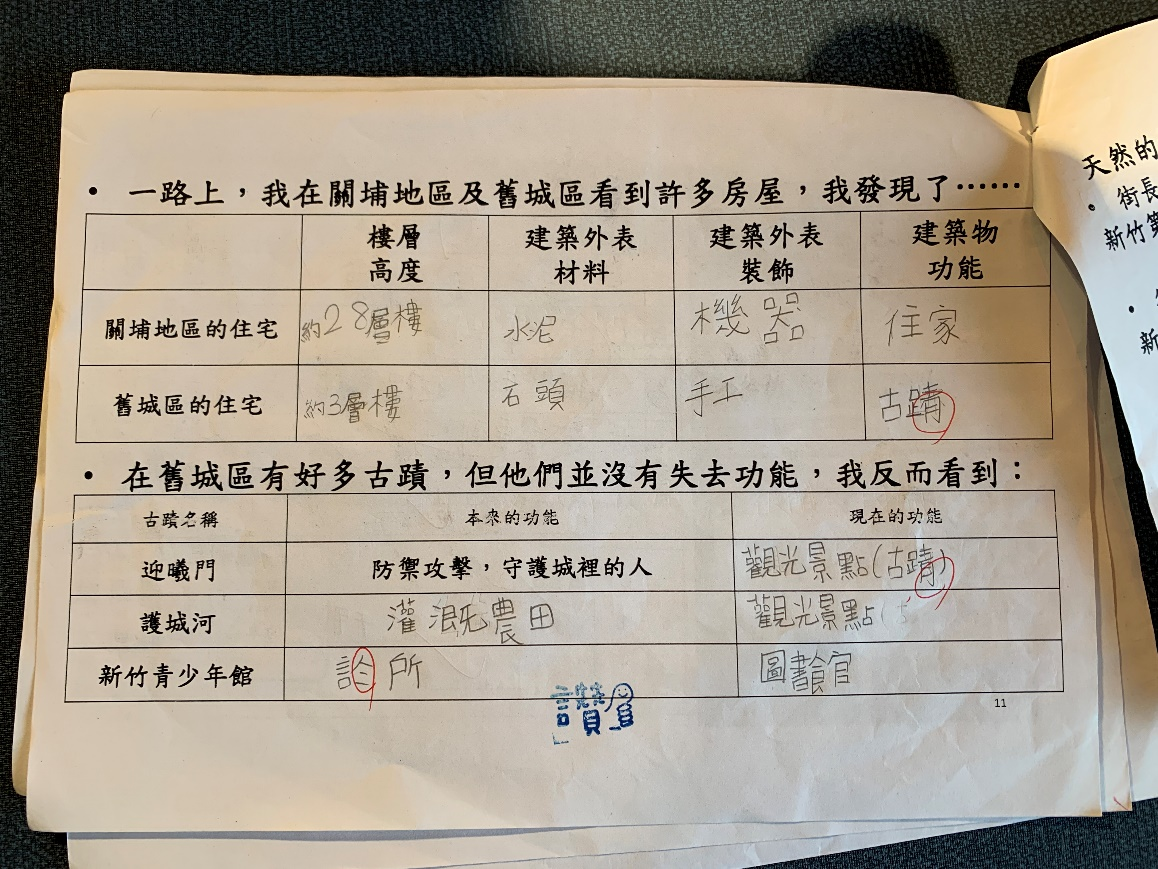 • 一路上，我在關埔地區及舊城區看到許多房屋，我發現了……
樓層 建築外表 建築外表 建築物
高度 材料 裝飾 功能
關埔地區的住宅 約28層樓 水泥 機器 住家
舊城區的住宅 約3層樓 石頭 手工 古蹟
• 在舊城區有好多古蹟，但他們並沒有失去功能，我反而看到：
古蹟名稱 本來的功能 現在的功能
迎曦門 防禦攻擊，守護城裡的人 觀光景點(古蹟)
護城河 灌溉農田 觀光景點
新竹青少年館 診所 圖書館
11
天然的
• 街長
新竹第
•
新